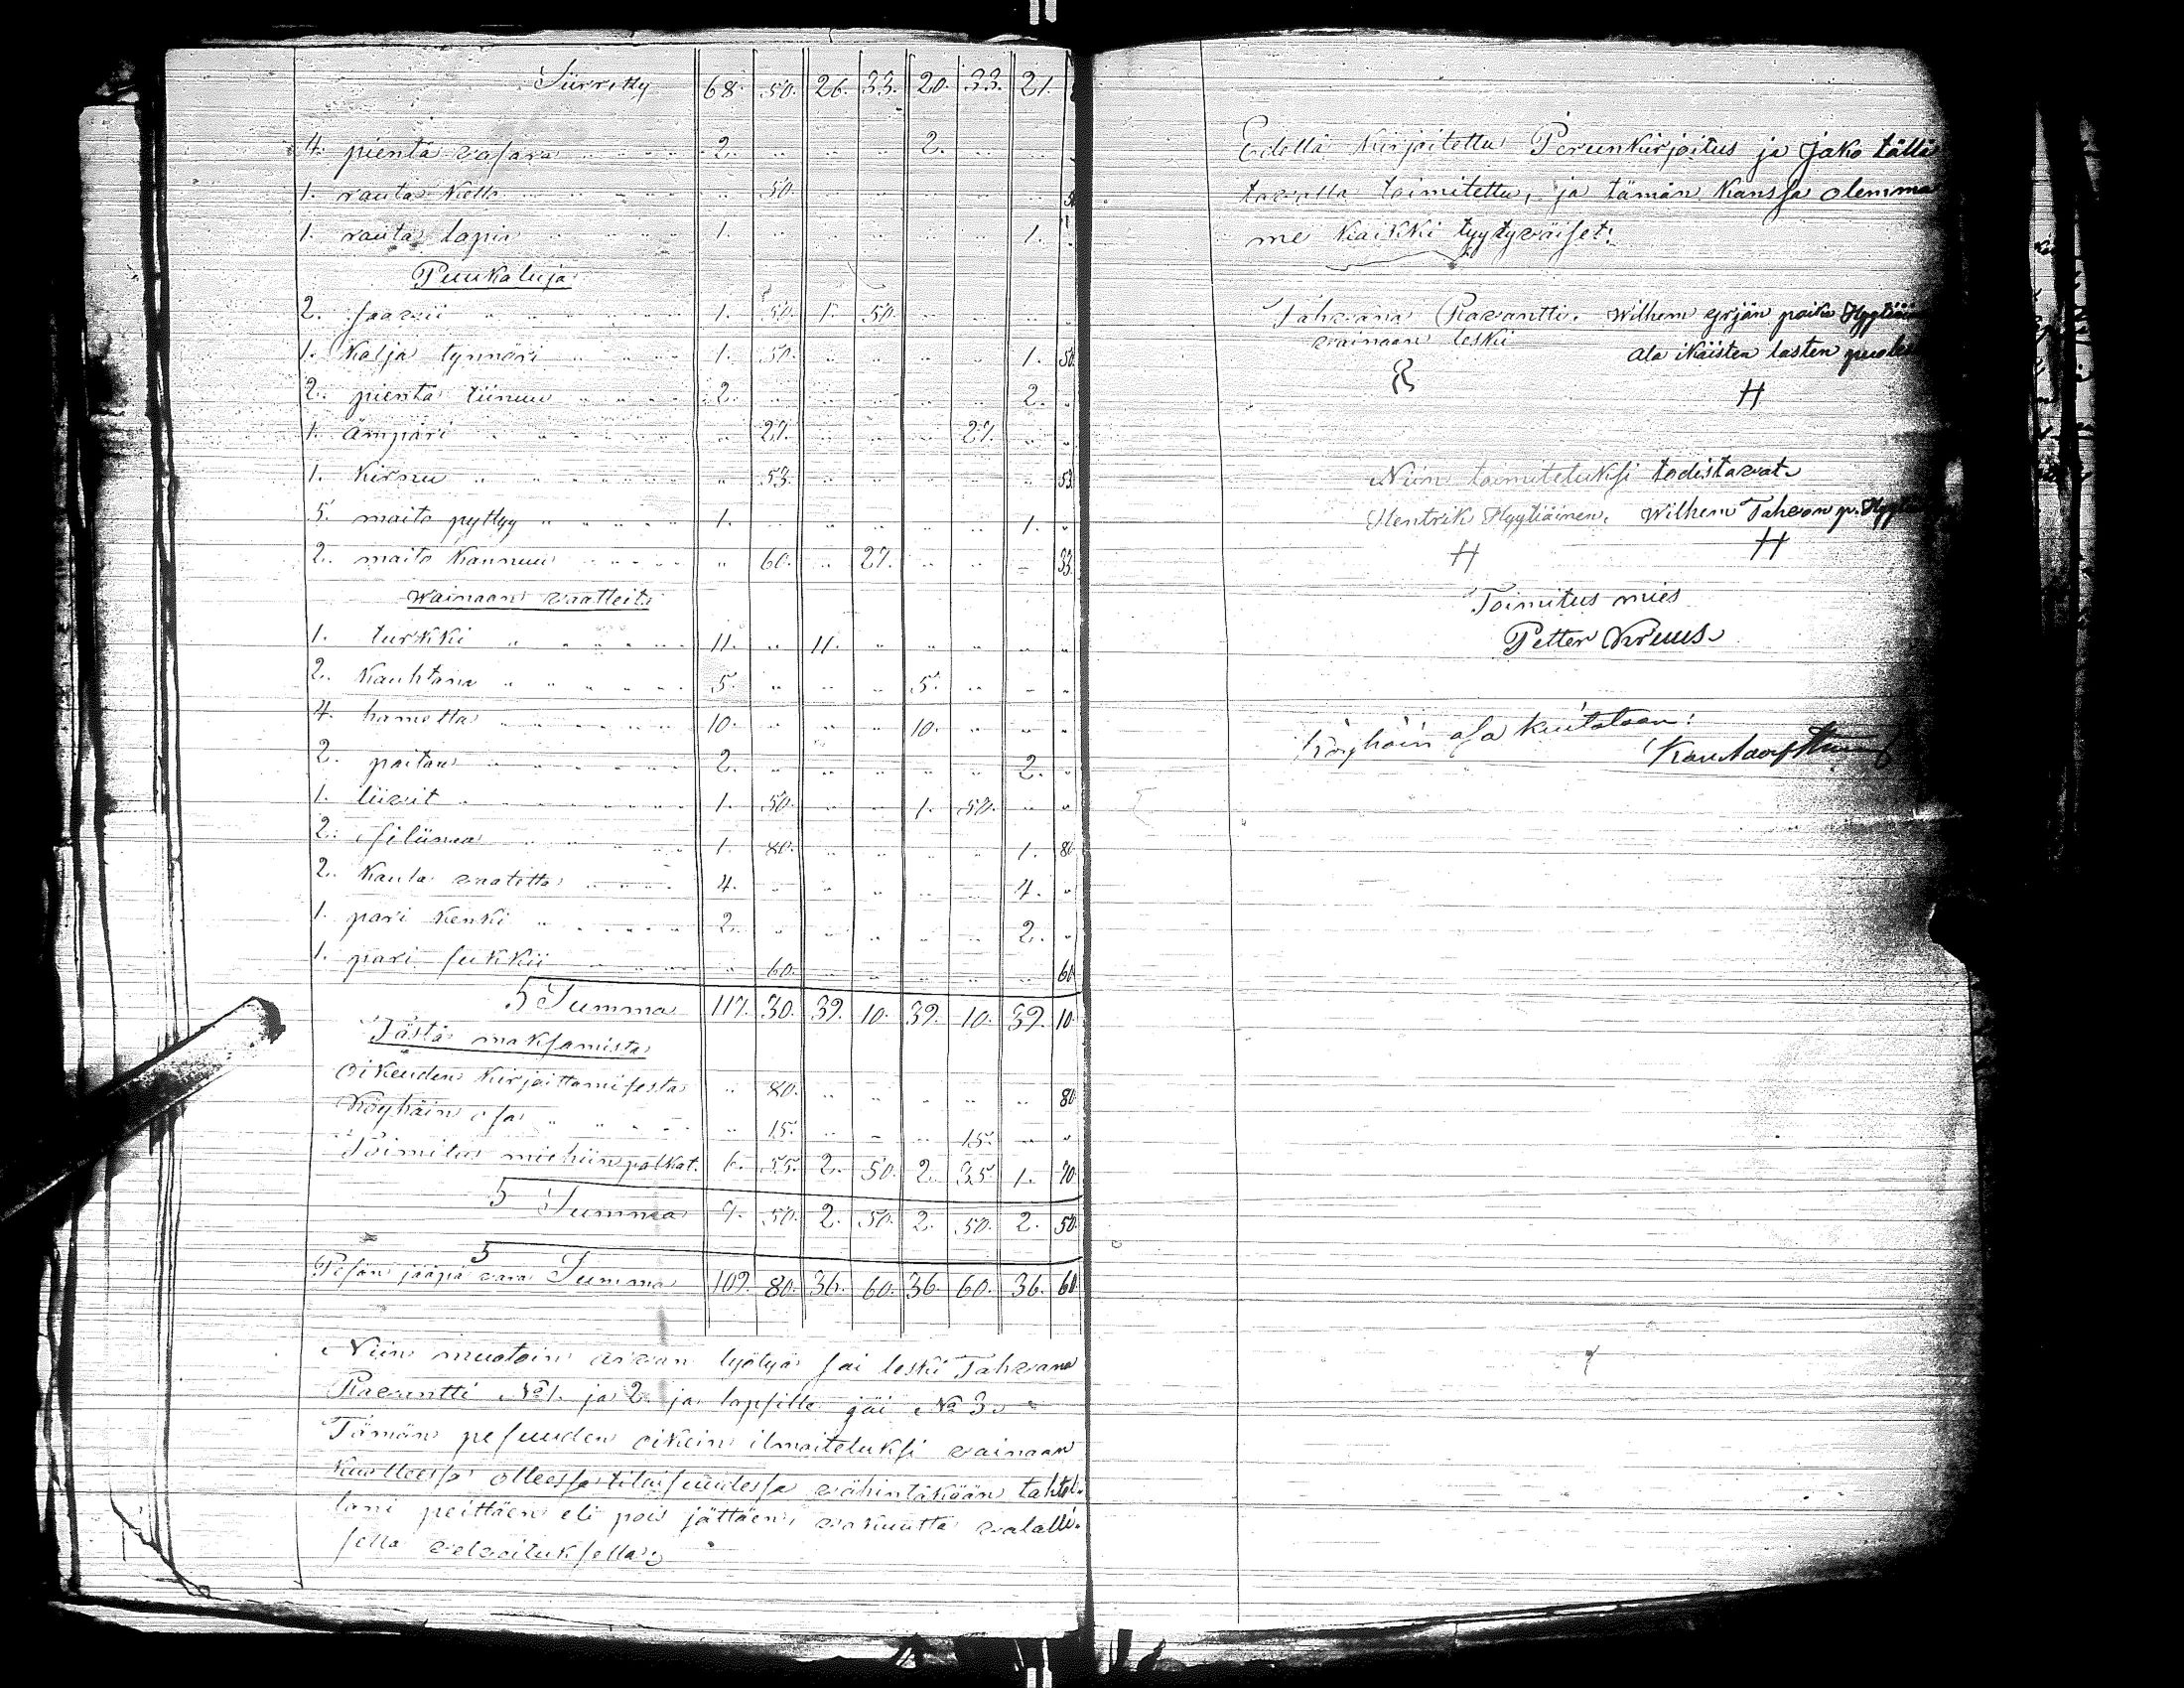 Siirretty 68. 50. 26. 33. 20. 33. 21.
4. pientä vasara 2. .. .. .. 2. .. ..
1. rauta kello .. 50. .. .. .. .. ..
1. rauta lapia 1. .. .. .. .. .. 1. ..
Puukaluja
2. saavii 1. 50. 1. 50. .. .. .. ..
1. Kalja tynnöri 1. 50. .. .. .. .. 1. 50.
2. pientä tiinuu 2. .. .. .. .. .. 2. ..
1. ämpäri .. 27. .. .. .. 27. .. ..
1. Kirnu .. 53. .. .. .. .. .. 53.
5. maito pyttyy 1. .. .. .. .. .. 1. ..
2. maito kannuu .. 60. .. 27. .. .. .. 33.
Wainaan vaatteita
1. turkki 11. .. 11. .. .. .. .. ..
2. Kauhtana 5. .. .. .. 5. .. .. ..
4. hametta 10. .. .. .. 10. .. .. ..
2. paitaa 2. .. .. .. .. .. 2. ..
1. liivit 1. 50. .. .. 1. 50. .. ..
2. siliinea 1. 80. .. .. .. .. 1. 80
2. Kaula vaatetta 4. .. .. .. .. .. 4. ..
1. pari kenki 2. .. .. .. .. .. 2. ..
1. pari sukkii .. 60. .. .. .. .. .. 60
Summa 117. 30. 39. 10. 39. 10. 39. 10.
Tästä maksamista
Oikeuden kirjoittamisesta .. 80. .. .. .. .. .. 80
Köyhäin osa .. 15. .. .. .. 15. .. ..
Toimitus miehiin palkat. 6. 55. 2. 50. 2. 35 1. 70.
Summa 7. 50. 2. 50. 2. 50. 2. 50.
Pesän jääpä vara Summa 109. 80. 36. 60. 36. 60. 36. 60
Niin muotoin arvan lyötyä sai leski Tahvana
Ravantti No 1. ja 2. ja lapsille jäi No 3.
Tämän pesuuden oikein ilmoiteluksi vainaan
kuolleessa olleessa tilaisuudessa vähintäkään tahtol-
lani peittäen eli pois jättäen, vakuutta valalli-
sella velvoituksella:
Edellä kirjoitettu Perunkirjoitus ja Jako tällä
tavalla toimitettu, ja tämän kanssa olemma
me kaikki tyytyväiset:
Tahvana Ravantti. Wilhem yrjän poika
vainaan leski ala ikäisten lasten
R H
Niin toimiteluksi todistavat
Hentrik Hyytiäinen. Wilhem Tahvon p.
H H
Toimitus mies
Petter Kruus.
Köyhäin osa kuitataan: